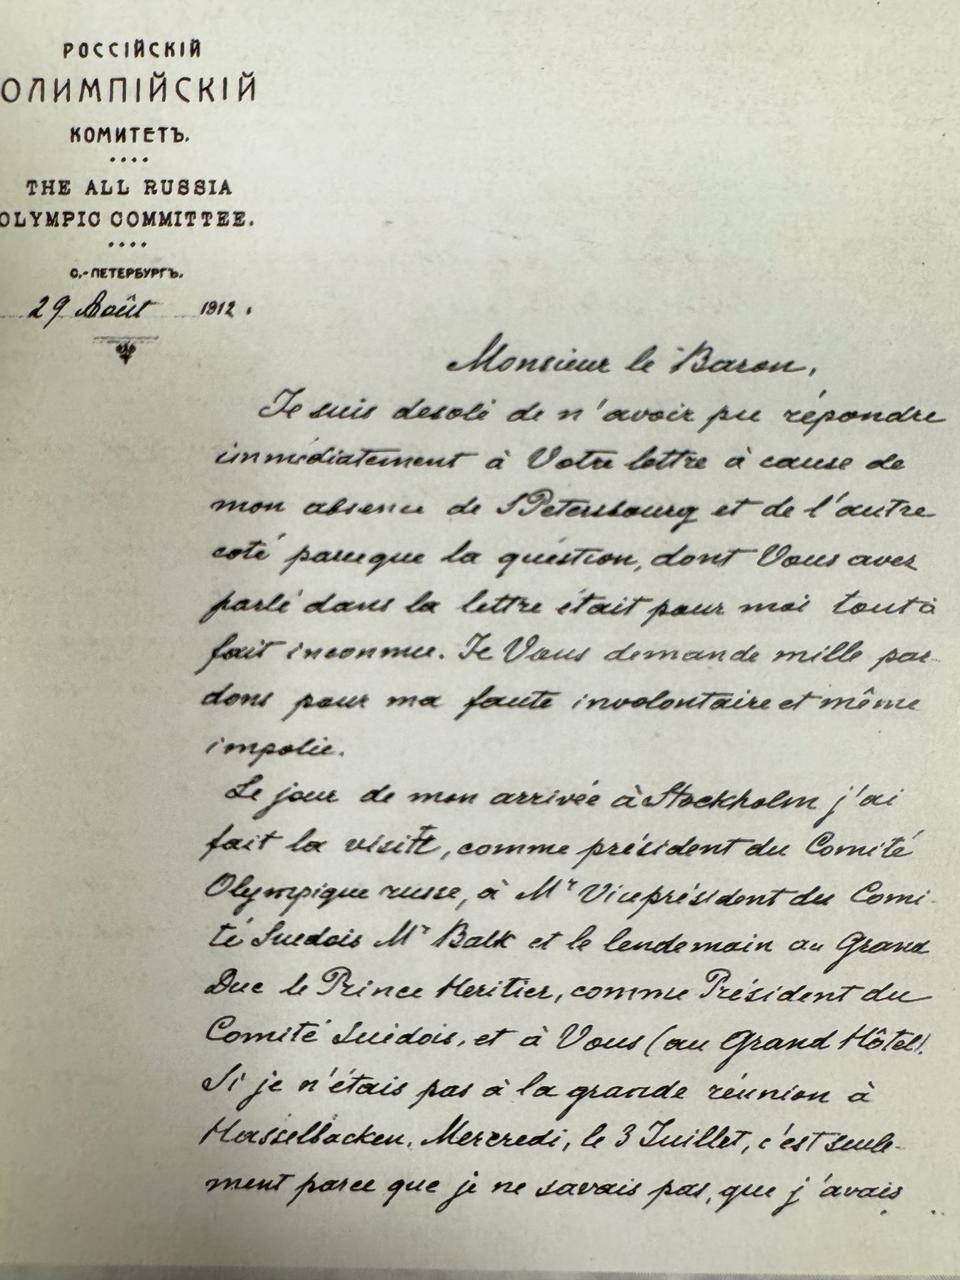 РОССІЙСКІЙ
ОЛИМПІЙСКІЙ
КОМИТЕТЪ.
THE ALL RUSSIA
OLYMPIC COMMITTEE.
С.-ПЕТЕРБУРГЪ.
29 Août 1912.
Monsieur le Baron,
Je suis desolé de n'avoir pu répondre
immédiatement à Votre lettre à cause de
mon absence de S Petersbourg et de l'autre
coté parceque la question, dont Vous avez
parlé dans la lettre était pour moi tout à
fait inconnue. Je Vous demande mille par-
dons pour ma faute involontaire et même
impolie.
Le jour de mon arrivée à Stockholm j'ai
fait la visite, comme président du Comité
Olympique russe, à Mr Viceprésident du Comi-
té Suedois Mr Balk et le lendemain au Grand
Duc le Prince Heritier, comme Président du
Comité Suédois, et à Vous (au Grand Hôtel).
Si je n'étais pas à la grande réunion à
Hasselbacken, Mercredi, le 3 Juillet, c'est seule-
ment parce que je ne savais pas, que j'avais